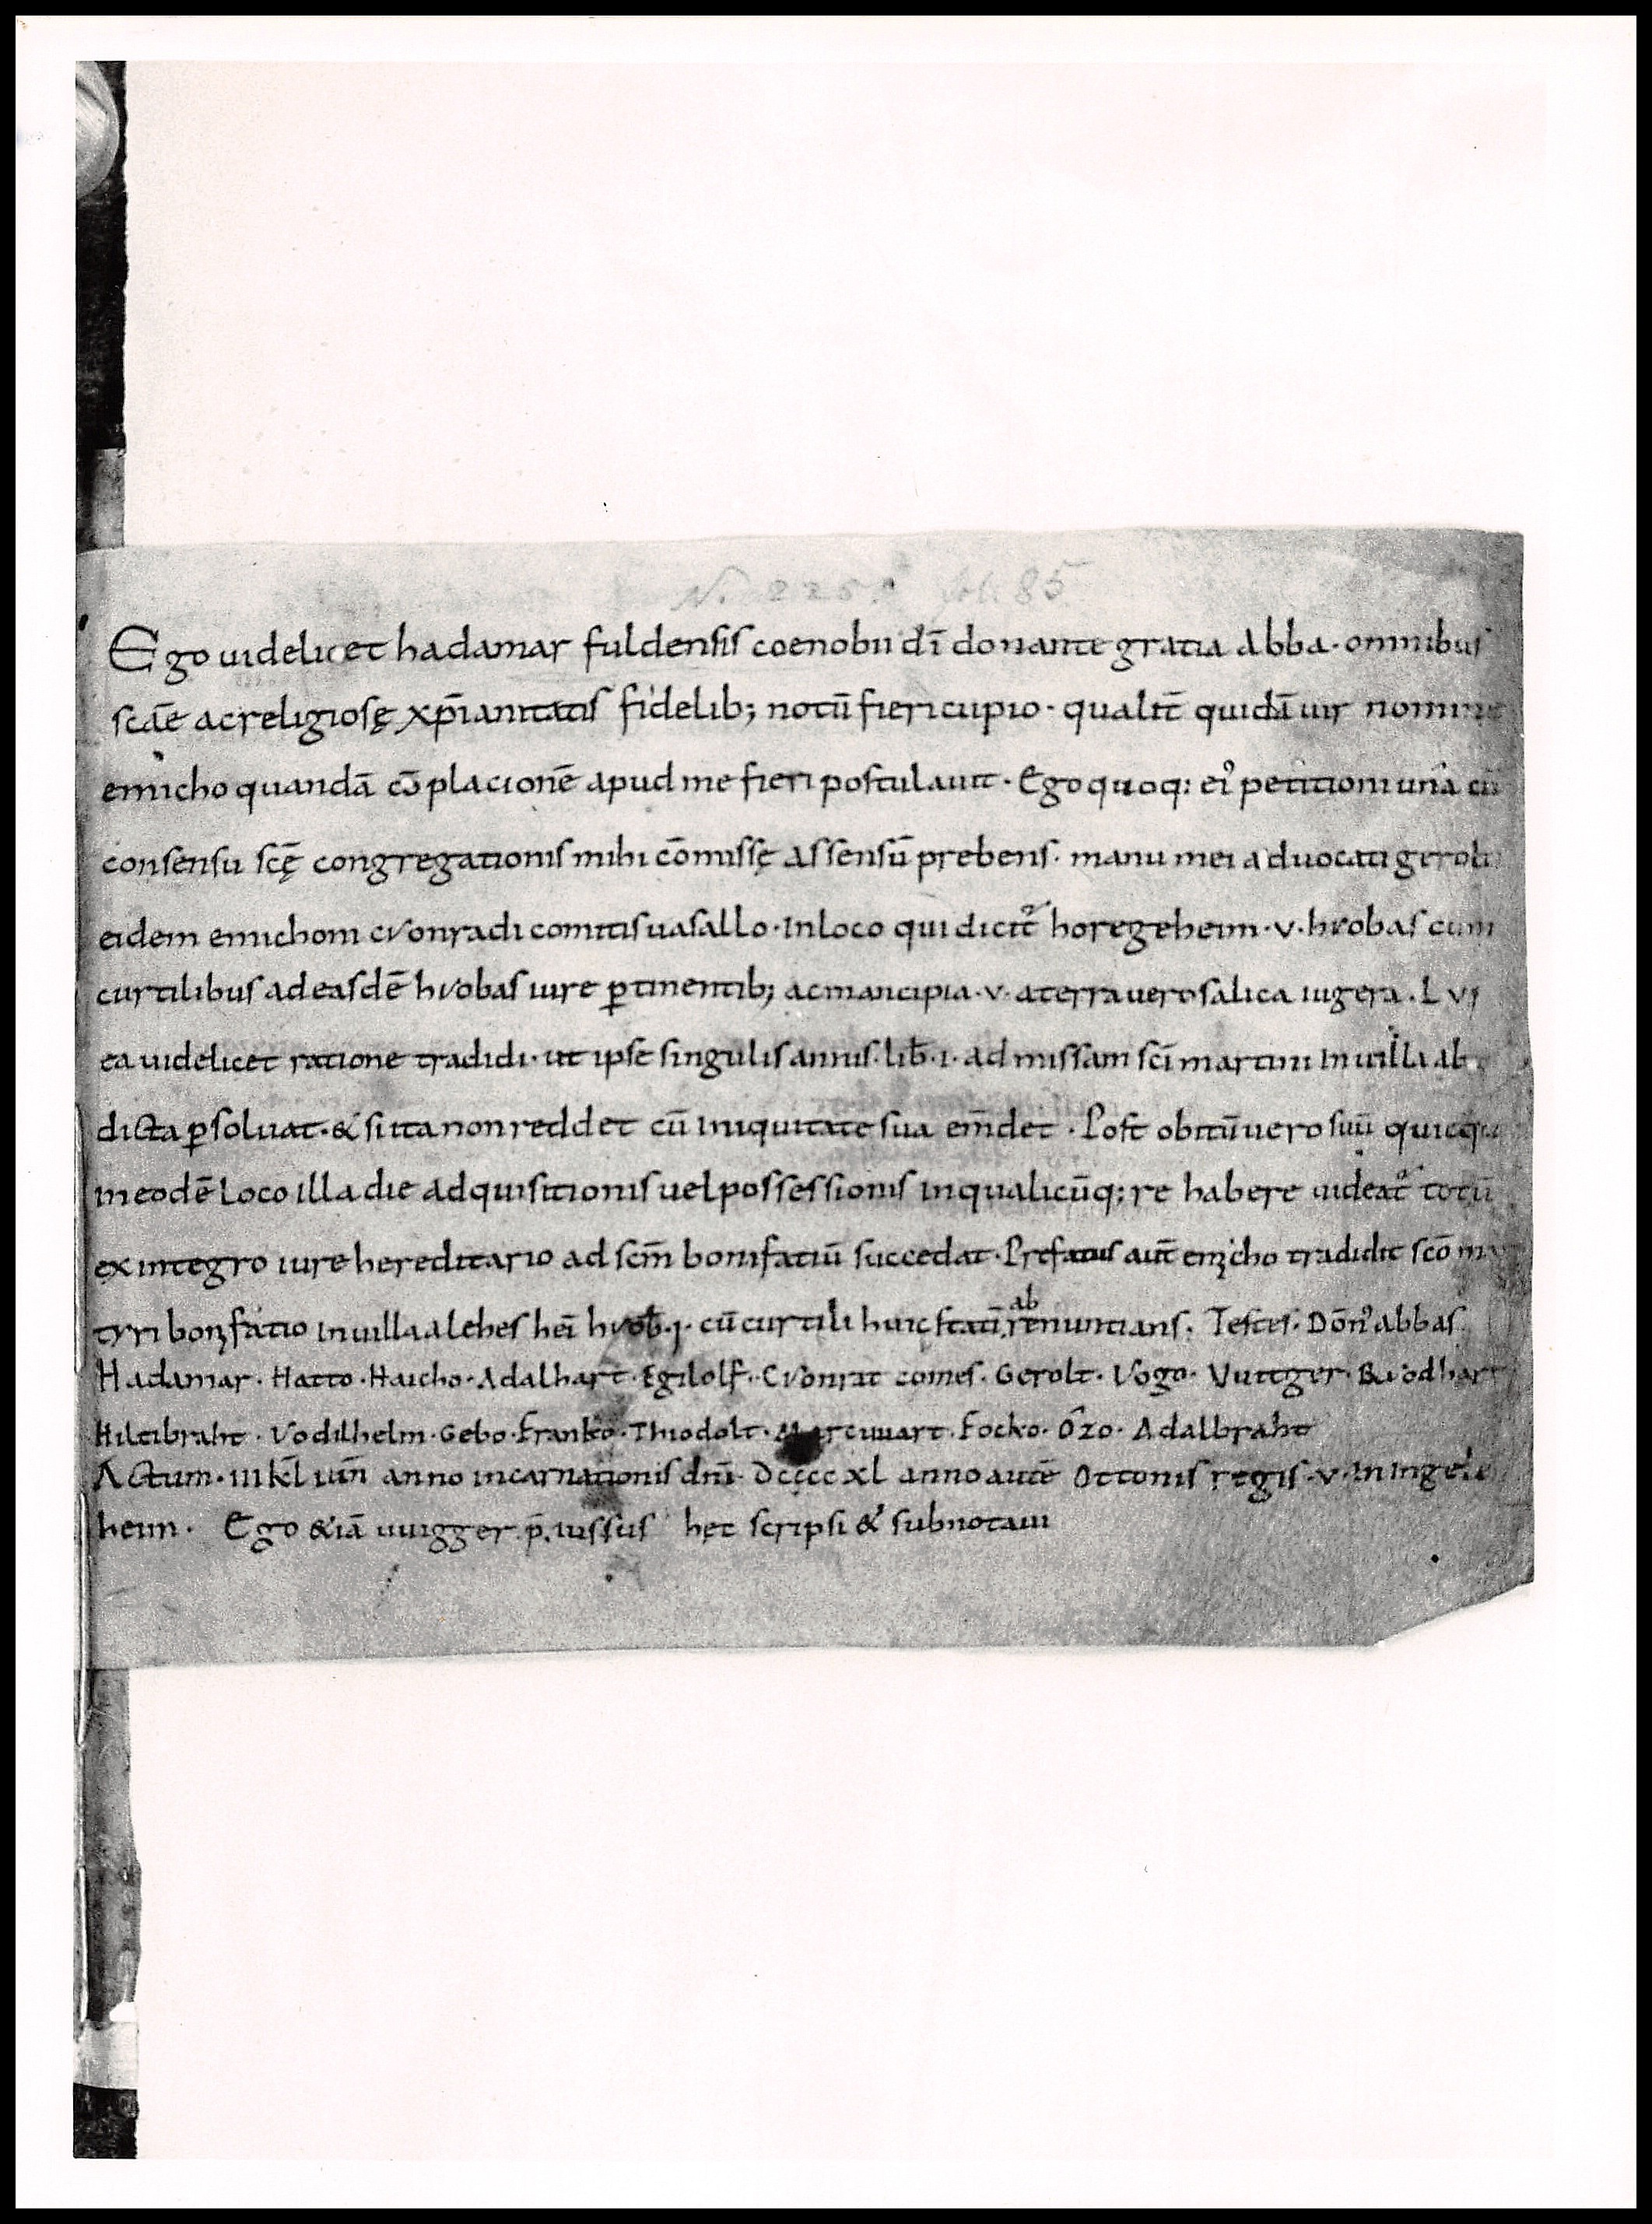 N. 225. fol. 85
Ego uidelicet hadamar fuldensis coenobii dī donante gratia abba · omnibus
scāe ac religiosę xp̄ianitatis fidelib; notū fieri cupio · qualit̄ quidā uir nomine
emicho quandā cō placionē apud me fieri postulauit · Ego quoq: ei᾿ petitioni una cū
consensu scę̄ congregationis mihi cōmissę assensū prebens · manu mei aduocati geroli
eidem emichoni cvonradi comitis uasallo · In loco qui dicit̄ horegeheim · v · hvobas cum
curtilibus ad easdē hvobas iure ꝑtinentib; ac mancipia · v · a terra uero salica iugera · L vj
ea uidelicet ratione tradidi · ut ipse singulis annis · lib̄ · i · ad missam sc̄i martini in uilla ab
dicta ꝑsoluat · & si ita non reddet cū iniquitate sua em̄det · Post obitū uero suū quicq
in eodē loco illa die adquisitionis uel possessionis in qualicūq; re habere uideat᷑ totū
ex integro iure hereditario ad scm̄ bonifatiū succedat · Prefatus aut̄ emicho tradidit scō mar
tyri bonifatio in uilla alehes hei̅ hvob̄ · j · cū curtili huic statī ab renuntians · Testes · Dōn᾿ abbas
Hadamar · Hatto · Haicho · Adalhart · Egilolf · Cvonrat comes · Gerolt · Vogo · Vuitger · Rvodhart
Hiltibraht · Vodilhelm · Gebo · Franko · Thiodolt · Marcuuart · Focko · Ozo · Adalbraht
Actum · iii kl̄ iun̄ anno incarnationis dnī · Dcccc xl anno autē Ottonis regis · v · In Ingele
heim · Ego &iā uuigger p̄. iussus hęc scripsi & subnotaui